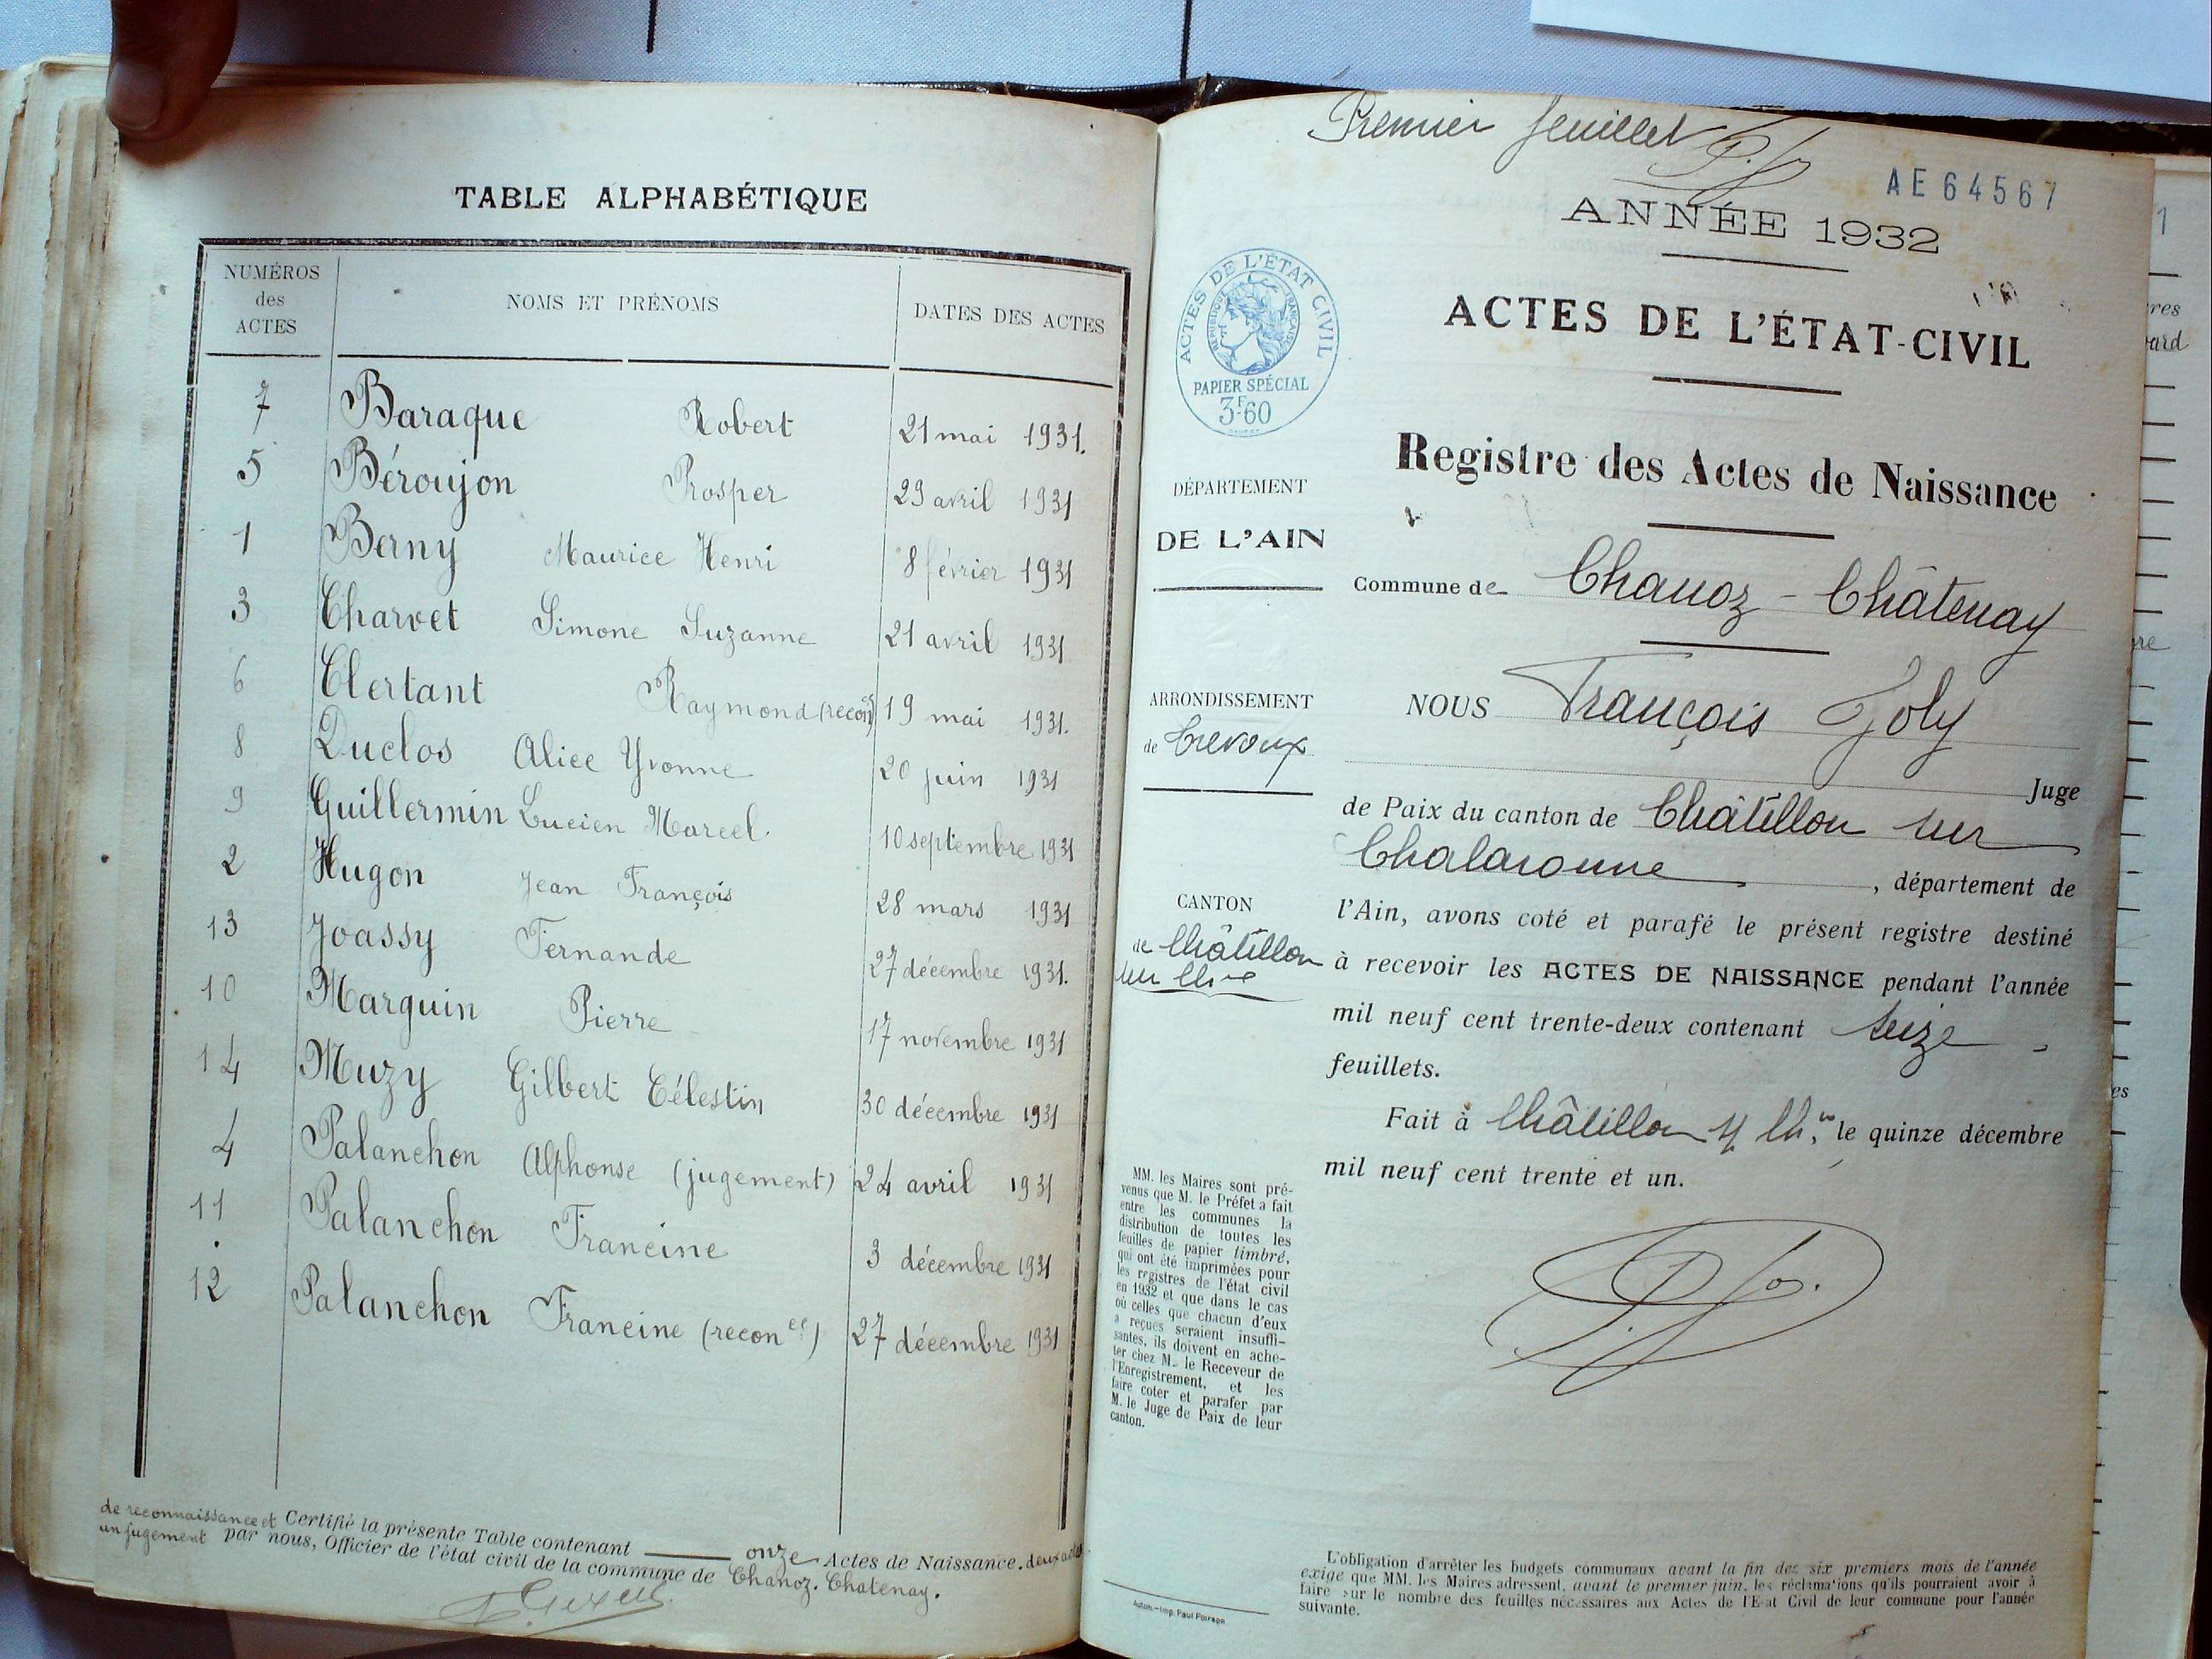 TABLE ALPHABÉTIQUE
NUMÉROS des ACTES NOMS ET PRÉNOMS DATES DES ACTES
7 Baraque Robert 21 mai 1931.
5 Béroujon Prosper 29 avril 1931
1 Berny Maurice Henri 8 février 1931
3 Charvet Simone Suzanne 21 avril 1931
6 Clertant Raymond (recon) 19 mai 1931.
8 Duclos Alice Yvonne 20 juin 1931
9 Guillermin Lucien Marcel. 10 septembre 1931
2 Hugon Jean François 28 mars 1931
13 Joassy Fernande 27 décembre 1931.
10 Marguin Pierre 17 novembre 1931
14 Muzy Gilbert Célestin 30 décembre 1931
4 Palanchon Alphonse (jugement) 24 avril 1931
11 Palanchon Francine 3 décembre 1931
12 Palanchon Francine (recon ce) 27 décembre 1931
de reconnaissance et Certifié la présente Table contenant onze Actes de Naissance. deux actes
un jugement par nous, Officier de l'état civil de la commune de Chanoz. Chatenay.
Premier feuillet
AE64567
ANNÉE 1932
ACTES DE L'ÉTAT CIVIL
RÉPUBLIQUE FRANÇAISE
PAPIER SPÉCIAL
3F.60
ACTES DE L'ÉTAT-CIVIL
Registre des Actes de Naissance
DÉPARTEMENT
DE L'AIN
Commune de Chanoz - Châtenay
ARRONDISSEMENT
de Trevoux
CANTON
de Châtillon
sur Chne
NOUS François Joly
Juge
de Paix du canton de Châtillon sur
Chalaronne, département de
l'Ain, avons coté et parafé le présent registre destiné
à recevoir les ACTES DE NAISSANCE pendant l'année
mil neuf cent trente-deux contenant seize
feuillets.
Fait à Châtillon s/ Ch.ne le quinze décembre
mil neuf cent trente et un.
MM. les Maires sont pré-
venus que M. le Préfet a fait
entre les communes la
distribution de toutes les
feuilles de papier timbré,
qui ont été imprimées pour
les registres de l'état civil
en 1932 et que dans le cas
où celles que chacun d'eux
a reçues seraient insuffi-
santes, ils doivent en ache-
ter chez M. le Receveur de
l'Enregistrement, et les
faire coter et parafer par
M. le Juge de Paix de leur
canton.
L'obligation d'arrêter les budgets communaux avant la fin des six premiers mois de l'année
exige que MM. les Maires adressent, avant le premier juin, les réclamations qu'ils pourraient avoir à
faire sur le nombre des feuilles nécessaires aux Actes de l'Etat Civil de leur commune pour l'année
suivante.